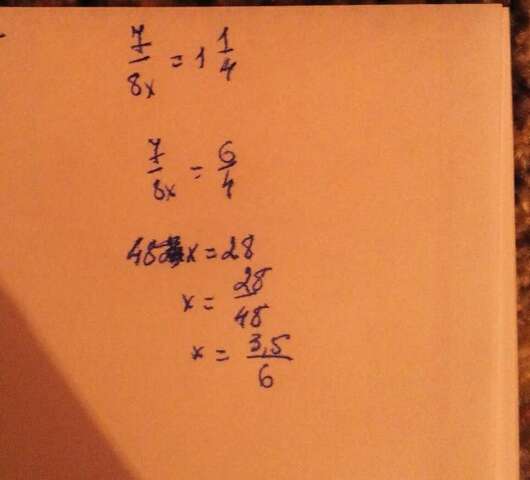 7/8x = 1 1/4
7/8x = 6/4
48x = 28
x = 28/48
x = 3,5/6